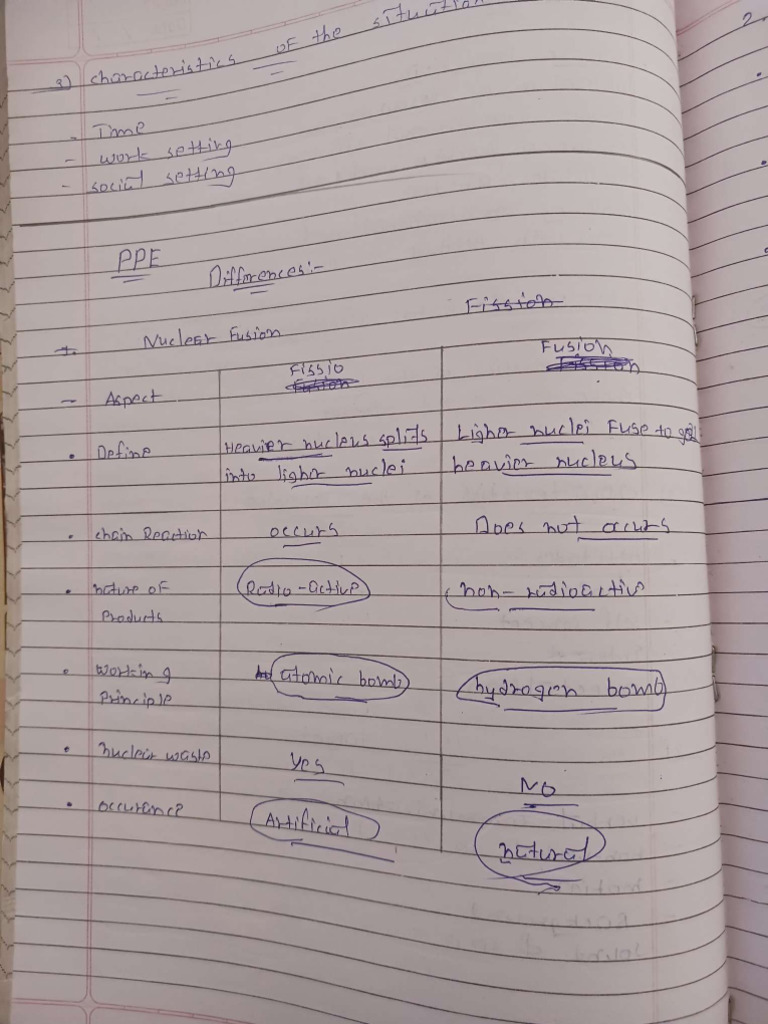 3) characteristics of the situation
- Time
- work setting
- social setting
PPE
Differences:-
Fission
1. Nuclear Fusion
- Aspect Fissio Fusion Fusion Fission
• Define Heavier nucleus splits Ligher nuclei Fuse to get
into ligher nuclei heavier nucleus
• chain Reaction occurs Does not occurs
• nature of Radio-active non-radioactiv
Products
• working atomic bomb hydrogen bomb
Principle
• nuclear waste Yes No
• occurence Artificial natural
2.